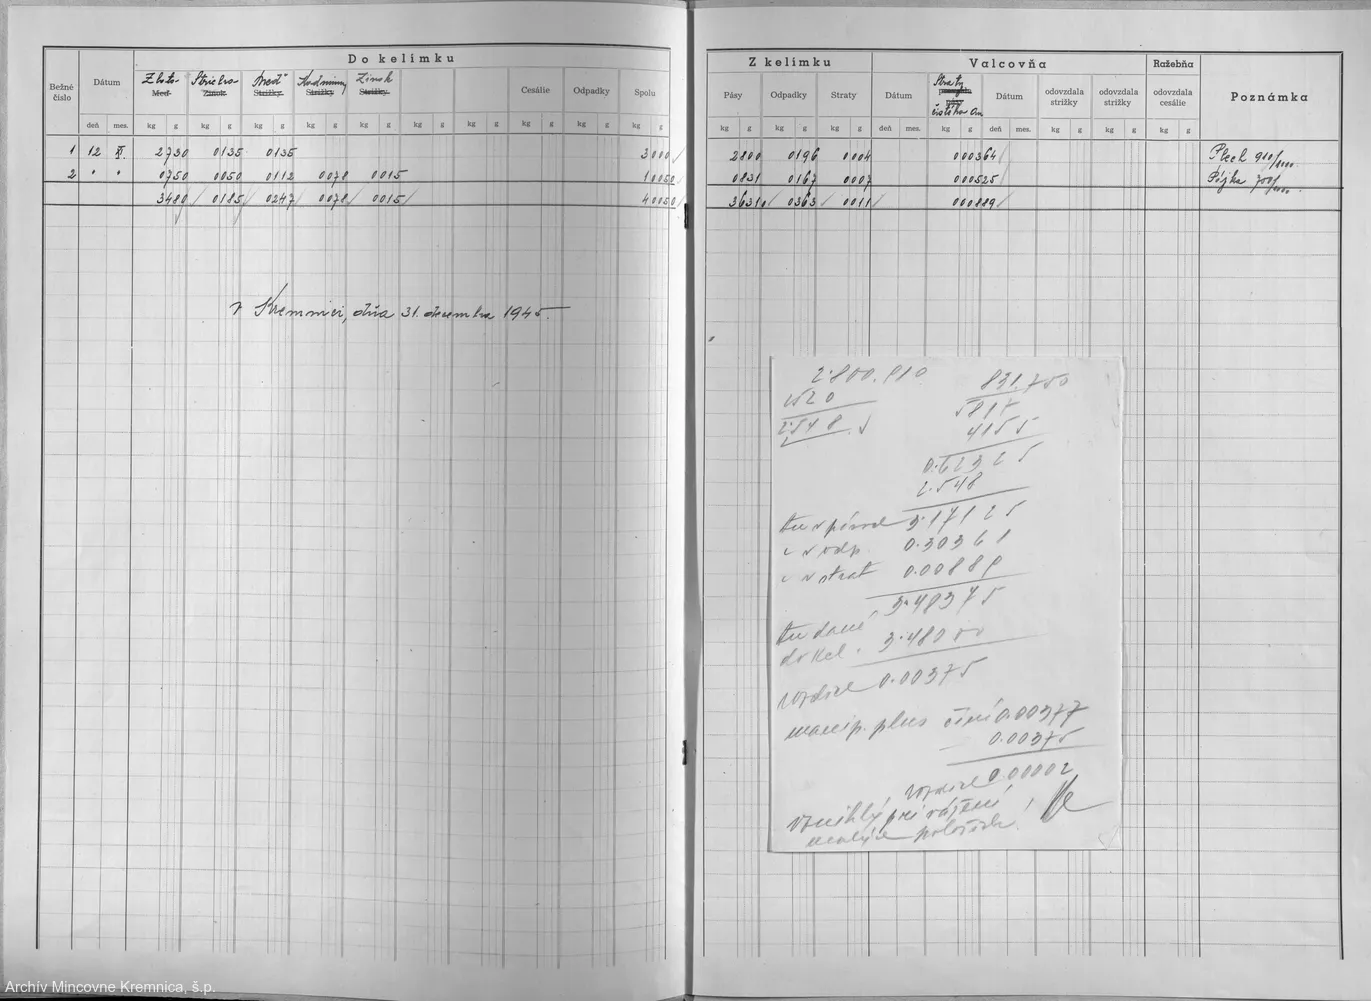 Do kelímku
Bežné číslo
Dátum
Zlato
Med
Striebro
Zinok
Meď
Strižky
Kadmium
Strižky
Zinok
Strižky
Cesálie
Odpadky
Spolu
deň mes. kg g kg g kg g kg g kg g kg g kg g kg g kg g kg g
1 12 XI. 2730 0135 0135 3000
2 " " 0750 0050 0112 0078 0015 10050
3480 0185 0247 0078 0015 40050
v Kremnici, dňa 31. decembra 1945.
Z kelímku
Valcovňa
Ražebňa
Poznámka
Pásy
Odpadky
Straty
Dátum
Straty
čistého Au
Dátum
odovzdala strižky
odovzdala strižky
odovzdala cesálie
kg g kg g kg g deň mes. kg g deň mes. kg g kg g kg g
2800 0196 0004 000364 Plech 910/000
0831 0167 0007 000525 Pájka 750/000
3631 0363 0011 000889
2.800.910
2520
2.548
831.750
5817
4155
0.62325
2.548
3.17125
0.30361
0.00889
3.48375
Au dané
do kel. 3.48000
rozdiel 0.00375
manip. plus činí 0.00377
0.00375
rozdiel 0.00002
vzniklý pri vážení
Archív Mincovne Kremnica, š.p.